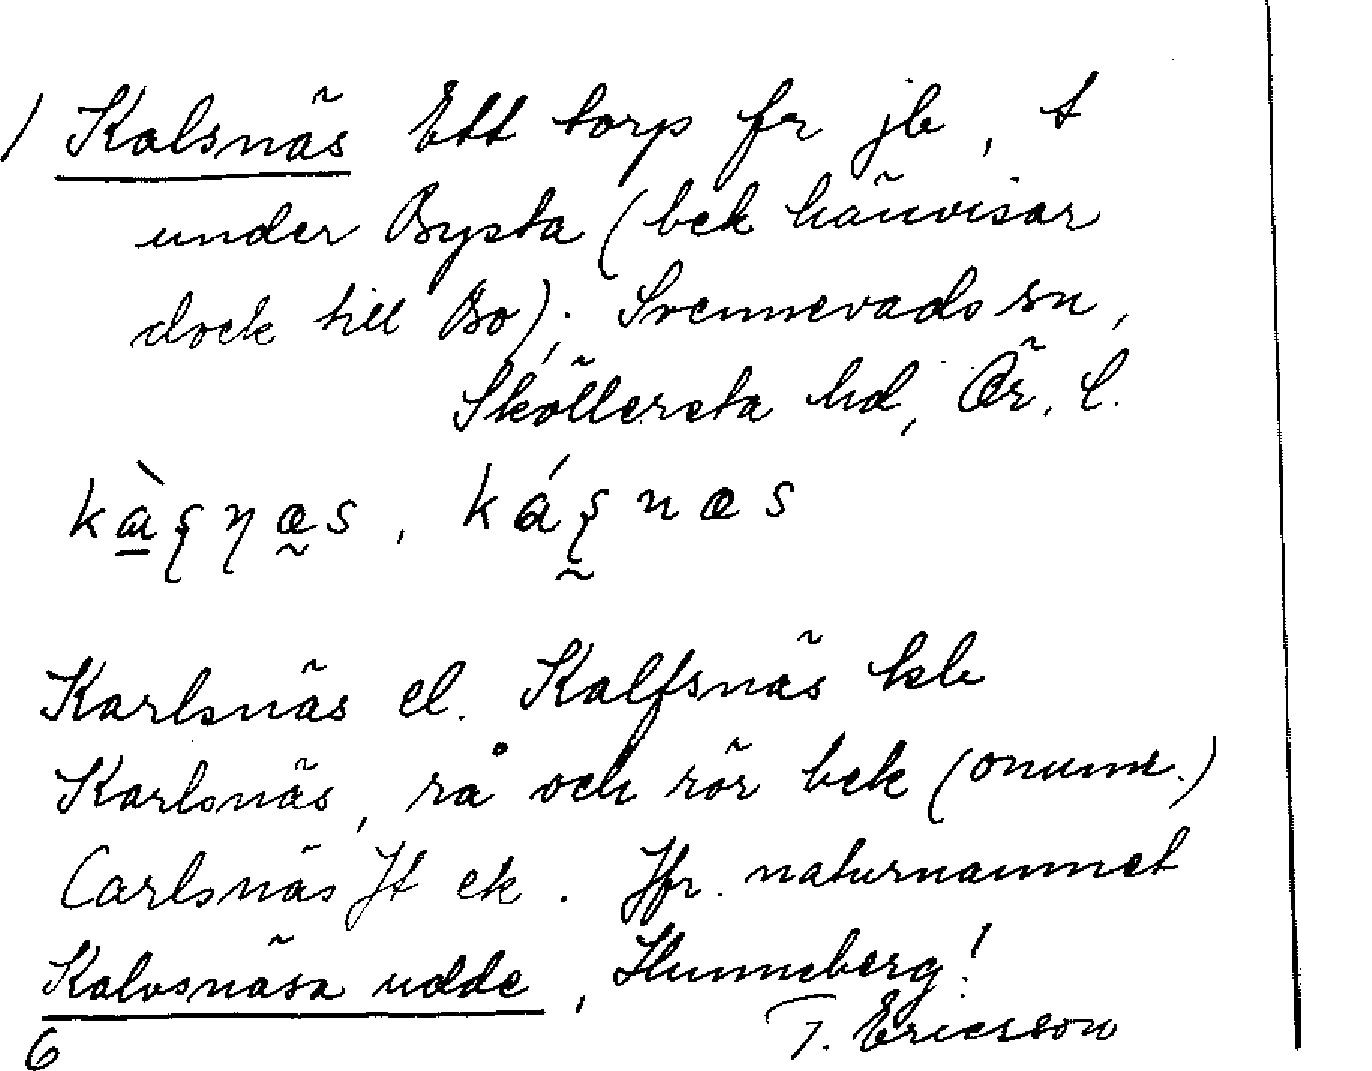 / Kalsnäs Ett torp fr jb, t
under Bysta (bek hänvisar
dock till Bo); Svennevads sn,
Sköllersta hd, Ör. l.
Karlsnäs el. Kalfsnäs kb
Karlsnäs, rå och rör bek (onumr.)
Carlsnäs Jt ek. Jfr. naturnamnet
Kalvsnäsa udde, Hunneberg!
6 T. Ericsson